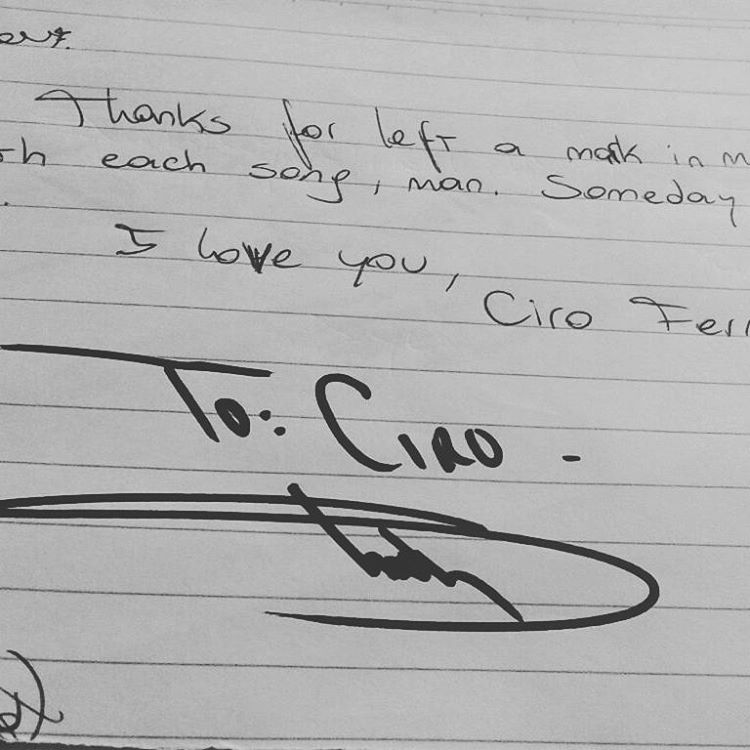 Thanks for left a mark in m
th each song, man. Someday
I love you,
Ciro Ferr
To: CIRO -